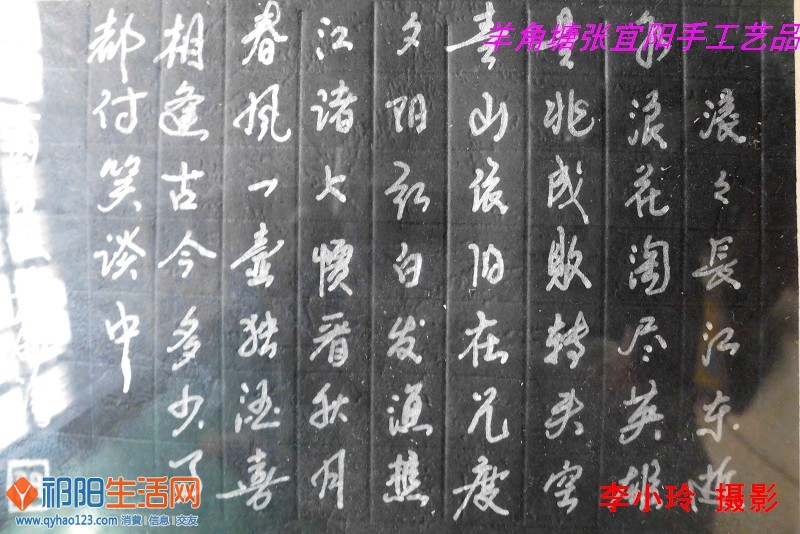 羊角塘张宜阳手工艺品
滚々長江东逝
水浪花淘尽英雄
是非成败转头空
青山依旧在几度
夕阳红白发渔樵
江诸上惯看秋月
春风一壶独酒喜
相逢古今多少
都付笑谈中
李小玲 摄影
祁阳生活网
www.qyhao123.com 消费 | 信息 | 交友